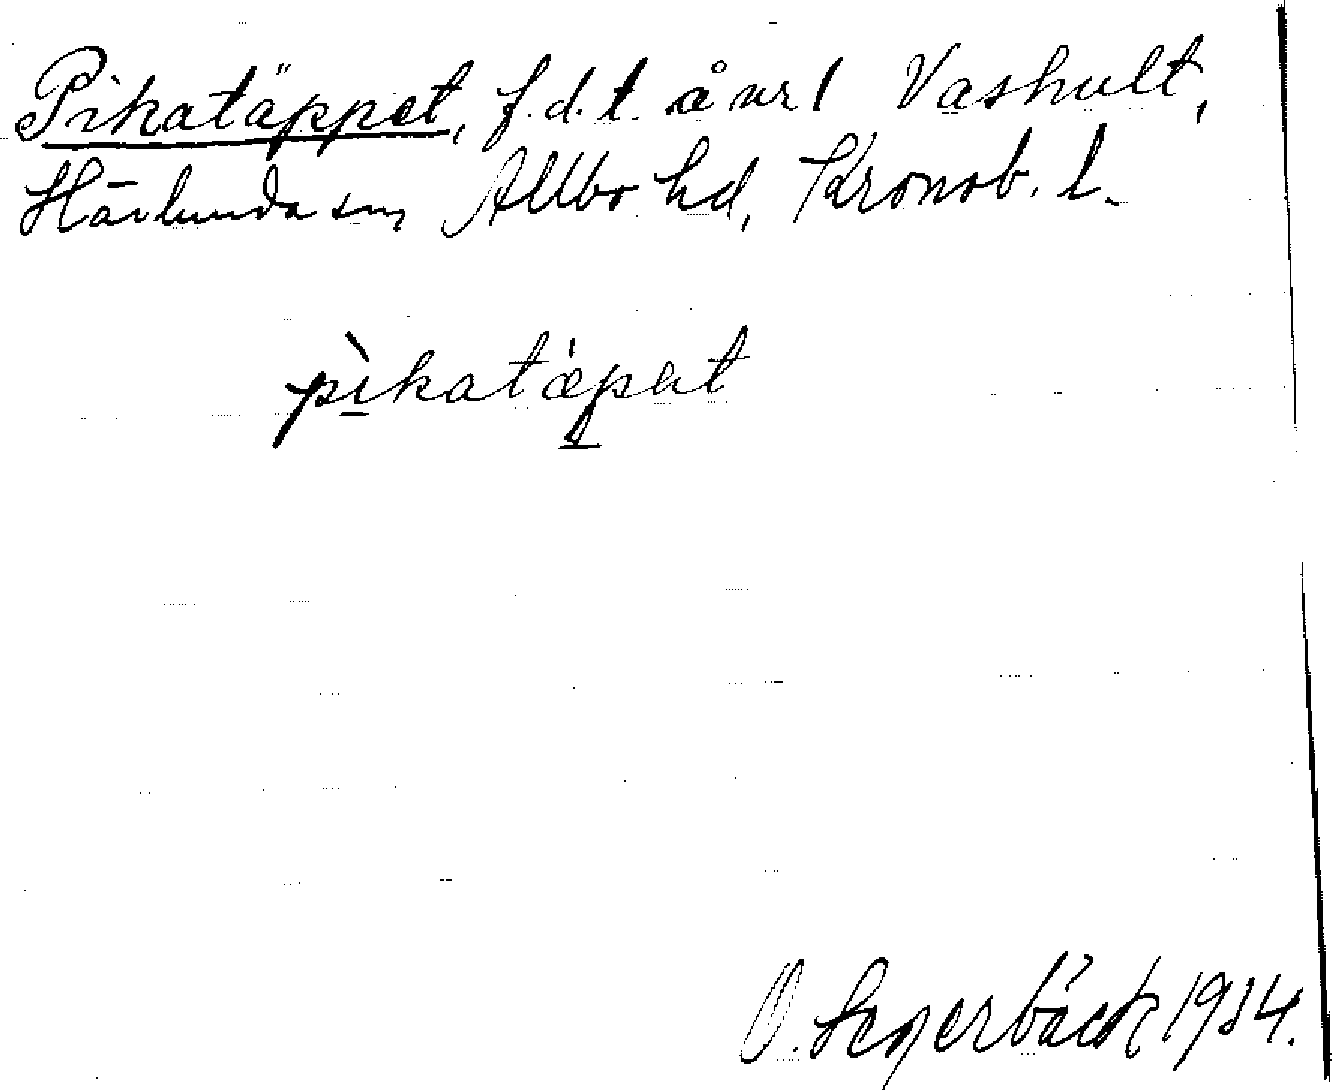 Pikatäppet, f.d.t. å nr 1 Vashult,
Härlunda sn, Allbo hd, Kronob. l.
pìkatæpat
O. Segerbäck 1934.